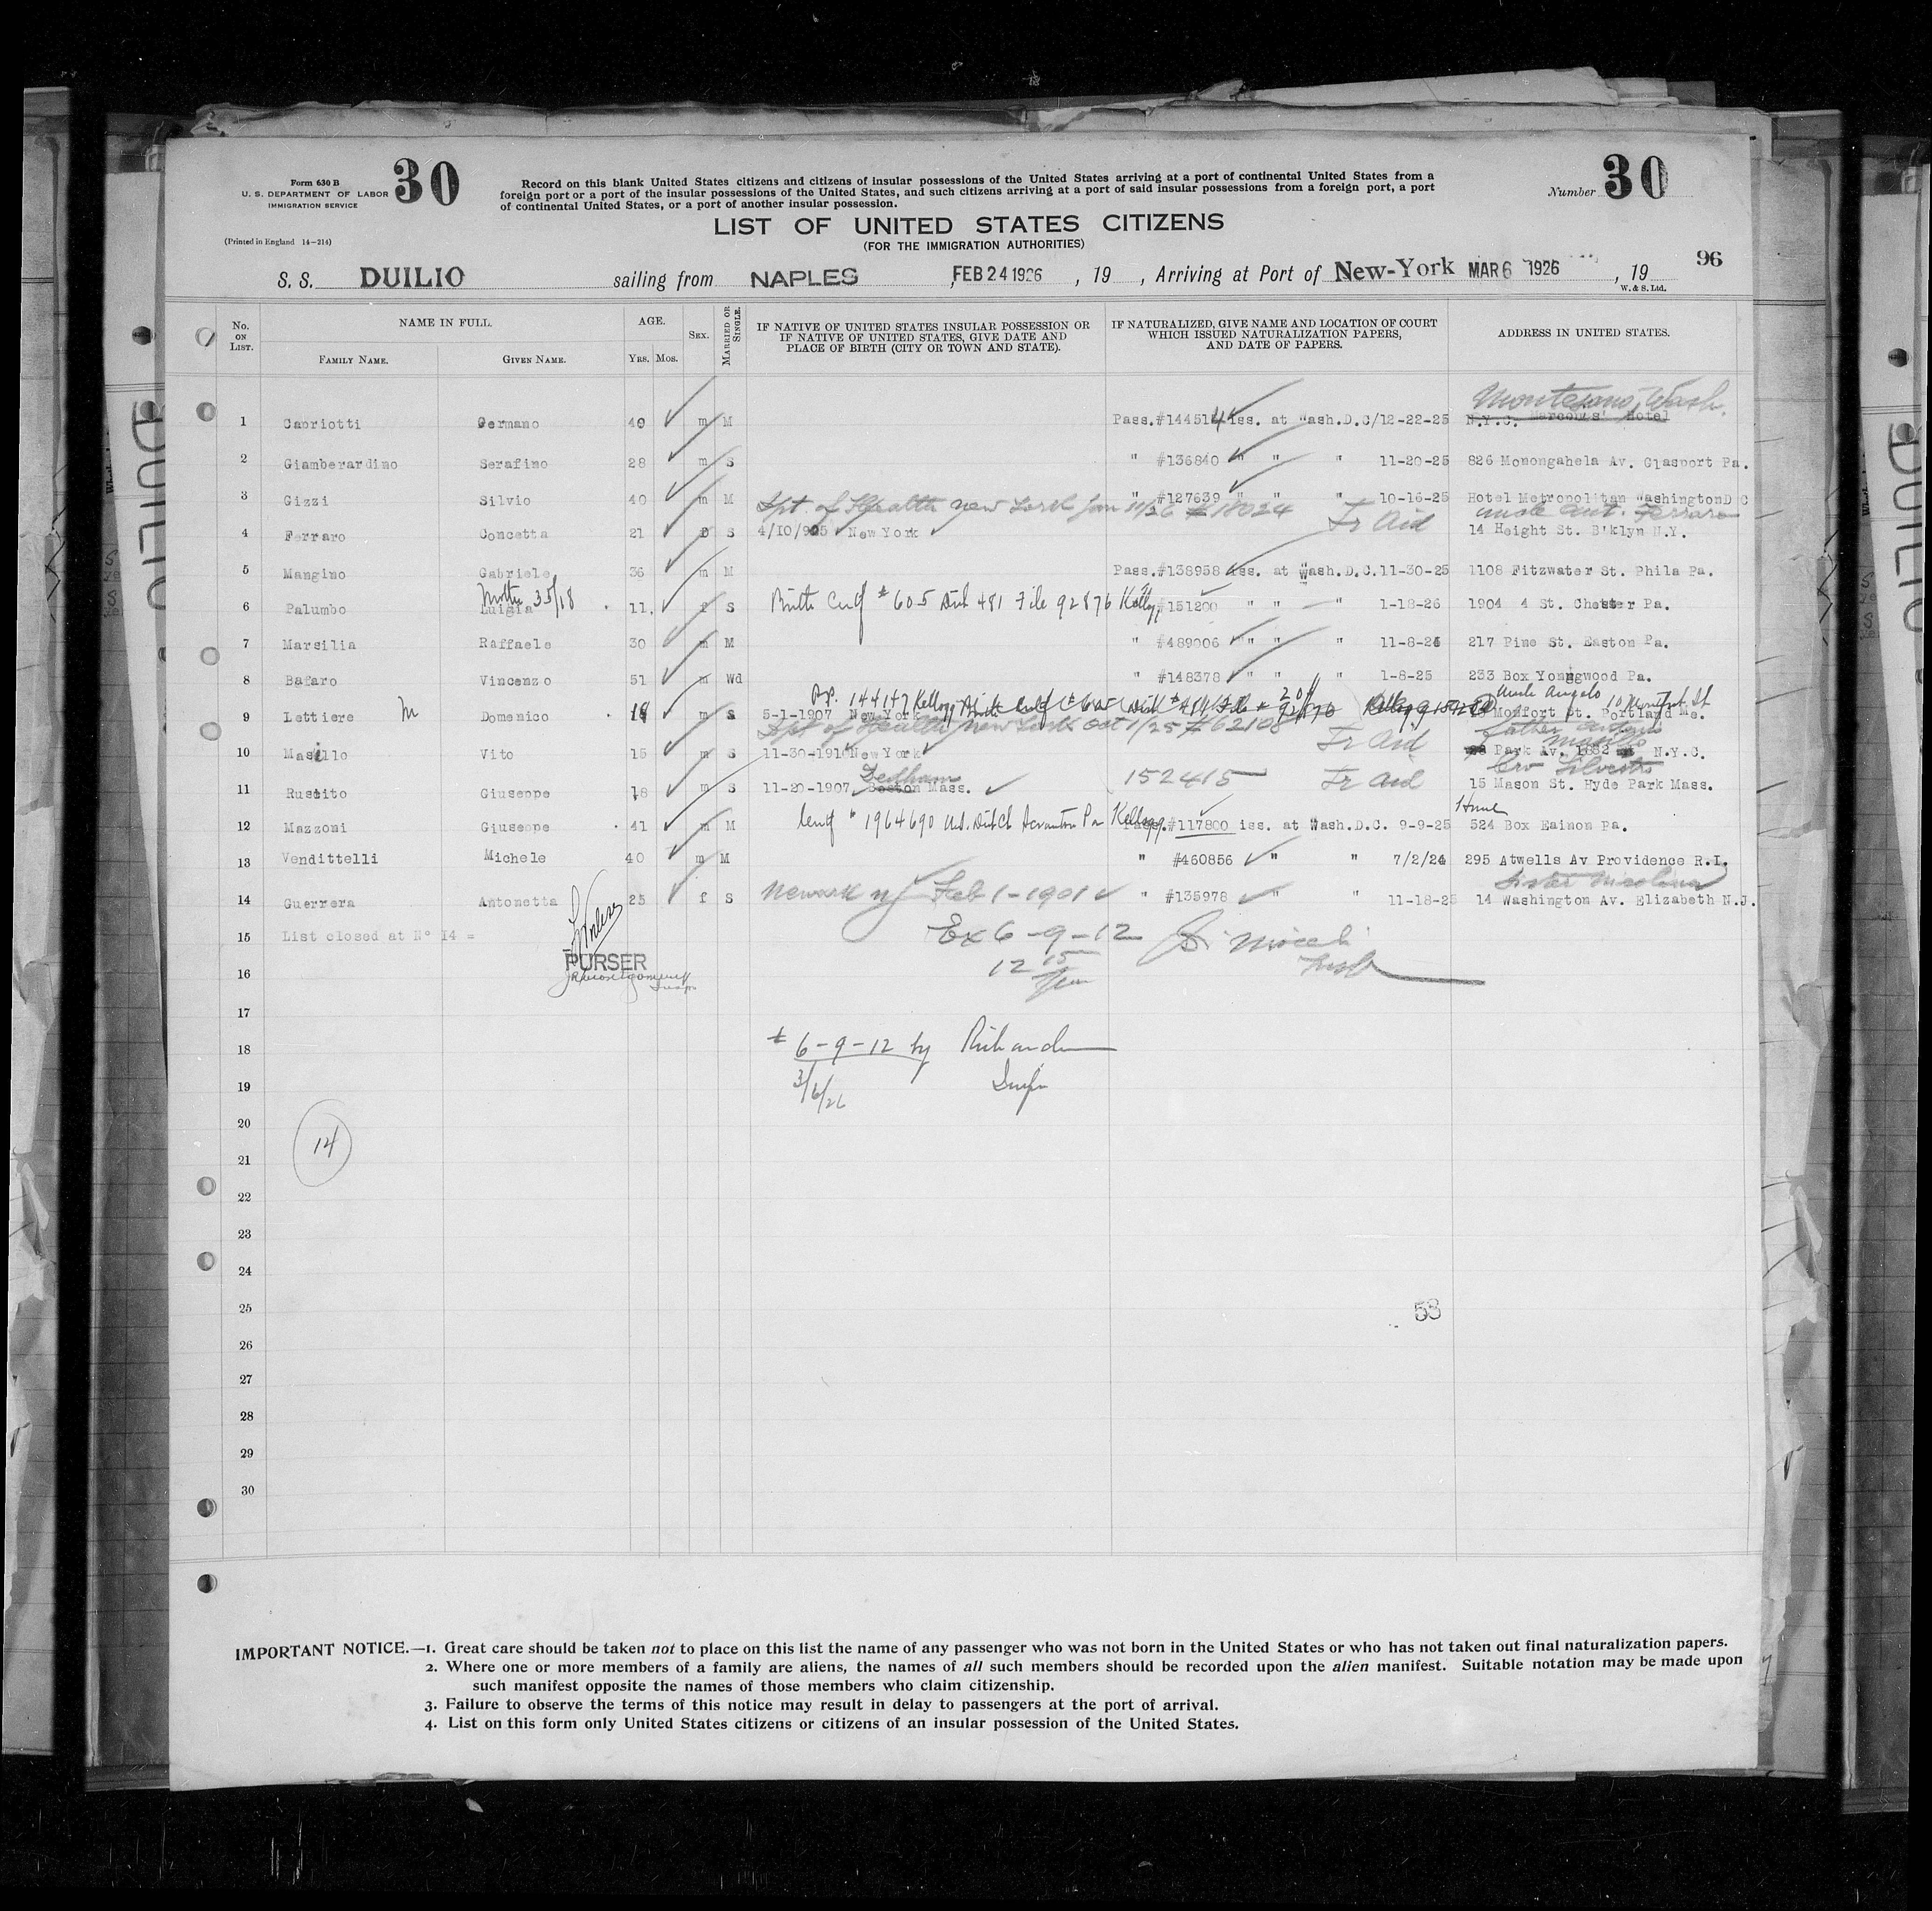 Form 630 B
U. S. DEPARTMENT OF LABOR
IMMIGRATION SERVICE
30
(Printed in England 14—214)
Record on this blank United States citizens and citizens of insular possessions of the United States arriving at a port of continental United States from a
foreign port or a port of the insular possessions of the United States, and such citizens arriving at a port of said insular possessions from a foreign port, a port
of continental United States, or a port of another insular possession.
Number 30
LIST OF UNITED STATES CITIZENS
(FOR THE IMMIGRATION AUTHORITIES)
96
S. S. DUILIO sailing from NAPLES, FEB 24 1926, 19 , Arriving at Port of New-York MAR 6 1926, 19
W. & S. Ltd.
No. ON LIST.
NAME IN FULL.
FAMILY NAME.
GIVEN NAME.
AGE.
YRS. MOS.
SEX.
MARRIED OR SINGLE.
IF NATIVE OF UNITED STATES INSULAR POSSESSION OR
IF NATIVE OF UNITED STATES, GIVE DATE AND
PLACE OF BIRTH (CITY OR TOWN AND STATE).
IF NATURALIZED, GIVE NAME AND LOCATION OF COURT
WHICH ISSUED NATURALIZATION PAPERS,
AND DATE OF PAPERS.
ADDRESS IN UNITED STATES.
Montesano, Wash.
1 Capriotti Germano 40 m M Pass.#144514 iss. at Wash.D.C/12-22-25 N.Y.C. Marconis' Hotel
2 Giamberardino Serafino 28 m S " #136840 " " " 11-20-25 826 Monongahela Av. Glasport Pa.
3 Gizzi Silvio 40 m M " #127639 " " " 10-16-25 Hotel Metropolitan WashingtonD C
Dpt. of Health New York Jan 11/26 #18024 Tr Aid uncle Ant. Ferraro
4 Ferraro Concetta 21 S 4/10/905 New York 14 Height St. B'klyn N.Y.
5 Mangino Gabriele 36 m M Pass.#138958 iss. at Wash.D.C.11-30-25 1108 Fitzwater St. Phila Pa.
Mother 35/18
6 Palumbo Luigia 11. f S Birth Certf # 605 Dist 481 File 92876 Kellogg #151200 " " " 1-18-26 1904 4 St. Chester Pa.
7 Marsilia Raffaele 30 m M " #489006 " " " 11-8-24 217 Pine St. Easton Pa.
8 Bafaro Vincenzo 51 m Wd " #148378 " " " 1-8-25 233 Box Youngwood Pa.
PP. 144147 Kellogg Uncle Angelo 10 Monfort St
9 Lettiere M Domenico 18 m S 5-1-1907 New York Monfort St. Portland Me.
Dpt of Health New York Oct 1/25 #62108 Tr Aid father
10 Masello Vito 15 m S 11-30-1910 New York Park Av. 1882 N.Y.C.
Dedham 152415 Tr Aid Bro Silvestro
11 Rustito Giuseppe 18 m S 11-20-1907 Boston Mass. 15 Mason St. Hyde Park Mass.
Home
12 Mazzoni Giuseppe 41 m M Certf # 1964690 U.S. Dist Ct Scranton Pa Kellogg #117800 iss. at Wash.D.C. 9-9-25 524 Box Eainon Pa.
13 Vendittelli Michele 40 m M " #460856 " " 7/2/24 295 Atwells Av Providence R.I.
Sister Nicolina
14 Guerrera Antonetta 25 f S Newark NJ Feb 1-1901 " #135978 " " 11-18-25 14 Washington Av. Elizabeth N.J.
15 List closed at N° 14 =
Ex 6-9-12
PURSER
16
12 15
17
18
± 6-9-12 by
19
3/6/26
20
14
21
22
23
24
25
53
26
27
28
29
30
IMPORTANT NOTICE.—1. Great care should be taken not to place on this list the name of any passenger who was not born in the United States or who has not taken out final naturalization papers.
2. Where one or more members of a family are aliens, the names of all such members should be recorded upon the alien manifest. Suitable notation may be made upon
such manifest opposite the names of those members who claim citizenship.
3. Failure to observe the terms of this notice may result in delay to passengers at the port of arrival.
4. List on this form only United States citizens or citizens of an insular possession of the United States.